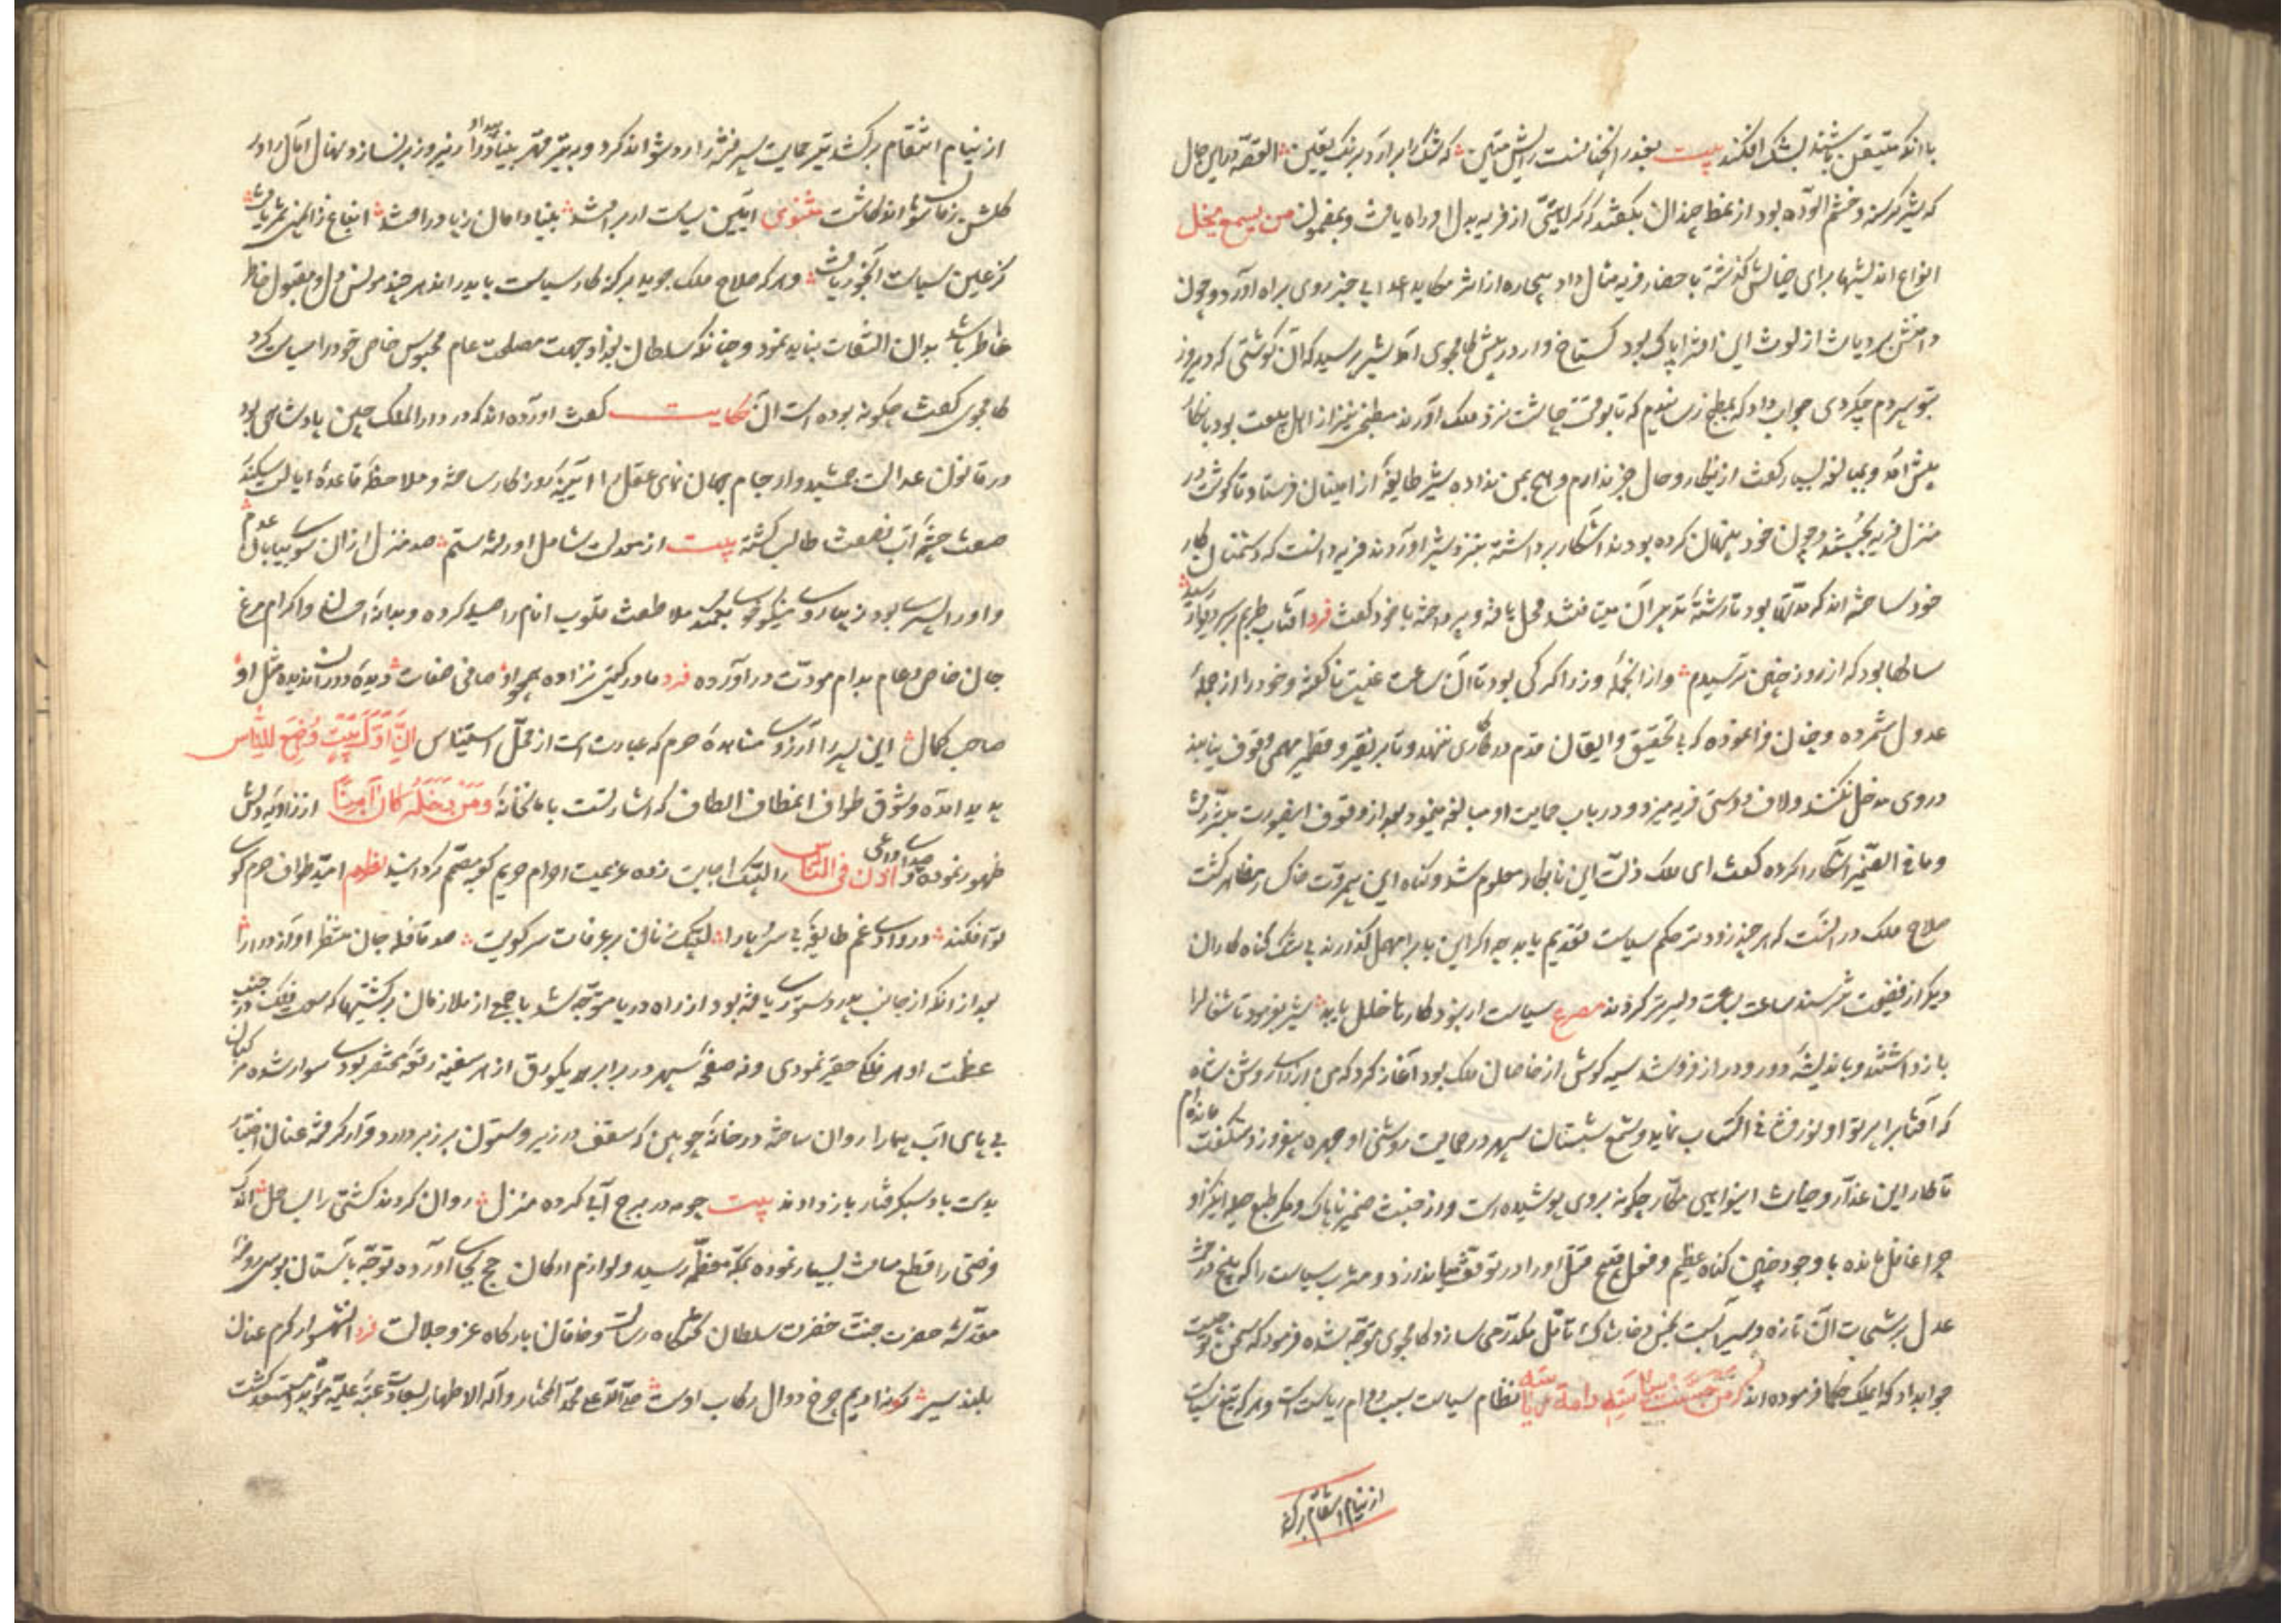 با آنکه متیقن باشند بشک افکنند بیت بغدر آنچنانست رایش متین که شک را برآرد برنگ یقین القصه در این حال
که شیر گرسنه و خشم آلوده بود از نمط چندان بگفتند که کراهیتی از فریسه بدل او راه یافت و بمضمون من یسمع یخل
انواع اندیشها برای خیالش گذشته باحضار فریسه مثال داد بیچاره از اثر مکاید اعدا بی خبر روی براه آورد و چون
دامنش بر دیانت از لوث این افترا پاک بود گستاخ وار در پیش کامجوی آمد شیر پرسید که آن گوشتی که دیروز
بتو سپردم چه کردی جواب داد که بمطبخ رسانیدم که تا بوقت چاشت نزد ملک آورند مطبخی نیز از اهل بیعت بود بانکار
پیش آمد و بمبالغه بسیار گفت ازینکار و حال خبر ندارم و هیچ بمن نداده شیر طایفه از امینان فرستاد تا گوشت در
منزل فریسه بجستند و چون خود پنهان کرده بودند آشکار برداشته بنزد شیر آوردند فریسه دانست که دشمنان کار
خود ساخته اند که مدتها بود تا رشته تدبیر آن می‌تافتند محل یافته و پرداخته با خود گفت فرد آفتاب طربم بر سر دیوار رسید
سالها بود که از روز چنین ترسیدم و از آنجمله وزرا گرگی بود تا آن ساعت غیبت ناگفته و خود را از جمله
عدول شمرده و چنان فرا نموده که بی تحقیق و ایقان قدم در کاری ننهد و تا بر نقیر و قطمیر مهمی وقوف نیابد
در وی مدخل نکند و لاف دوستی فریسه میزد و در باب حمایت او مبالغه مینمود بعد از وقوف اینصورت پیشتر رفت
و ما فی الضمیر آشکارا کرده گفت ای ملک ذلت این نابکار معلوم شد و گناه این بیمروت خاکسار بظهر گشت
صلاح ملک در آنست که هر چند زودتر حکم سیاست تقدیم یابد چه اگر این باب را مهمل گذارند بی شک گناه کاران
دیگر از فضیحت نترسند و ساعت بساعت دلیرتر گردند مصرع سیاست ار نبود کارها خلل یابد شیر بفرمود تا شغال را
باز داشتند و باندیشه دور و دراز فرو شد سیه گوش از خاصان ملک بود آغاز کرد که من از رای روشن شاه
که آفتاب از پرتو او نور فشانی اکتساب نماید و شمع شبستان سپهر در حمایت روشنی او چهره بیفروزد شگفت مانده ام
تا کار این غدار و خیانت اینواهی مکار چگونه بر وی پوشیده است و از خبث ضمیر ناپاک و مکر طبع حیله انگیز او
چرا غافل مانده با وجود چنین گناه عظیم و فعل قبیح قتل او را در توقف میاندازد و مشرب سیاست را که بیخ درخت
عدل برشحات آن تازه و سیرآبست بخس و خاشاک تأمل مکدر می سازد کامجوی متوجه شده فرمود که سخن تو چیست
جواب داد که ای ملک حکما فرموده اند که من حسنت سیاسته دامت ریاسته نظام سیاست سبب دوام ریاست است و هر که تیغ سیاست
از نیام انتقام برکشد
از نیام انتقام برکشد بتیر حمایت سپر فتنه را رد نتواند کرد و به تیر قهر بنیاد بیداد را زیر و زبر نسازد و نهال آمال را در
گلشن زمانه نتواند کاشت مثنوی آیین سیاست ار برافتد بنیاد امان ز پا درافتد ابناع زاایمنی ثمر یافت
کز عین سیاست آبخور یافت و هر که صلاح ملک جوید هر که کار سیاست باید راند هر چند مونس دل و مقبول خاطر
خاطر باشد بدان التفات نباید نمود چنانکه سلطان بغداد جهت مصلحت عام محبوس خاص خود را سیاست کرد
کامجوی گفت چگونه بوده است آن حکایت گفت آورده اند که در دار الملک چین پادشاهی بود
در قانون عدالت جمشید وار جام جهان نمای عقل را آیینه کردار ساخته و ملاحظه قاعده ایالت سکندر
صفت چشمه آب نصفت طالب گشته بیت از معدلت شامل او رفته ستم صد منزل از آن سوی بیابان عدم
و او را پسری بود زیبا روی نیکو خوی بکمند ملاطفت قلوب انام را صید کرده و بدانه احسان و اکرام مرغ
جان خاص و عام بدام مودت در آورده فرد مادر گیتی نزاده همچو او صافی صفات دیده دوران ندیده مثل او
صاحب کمال این پسر را آرزوی مشاهده حرم که عبارت است از محل استیناس ان اول بیت وضع للناس
پدید آمده و شوق طواف آنمطاف الطاف که اشارتست بامانخانه و من دخله کان آمنا از زاویه دلش
ظهور نموده و صدای داعی و اذن فی الناس را لبیک اجابت زده عزیمت احرام حریم کعبه مصمم گردانید نظم امید طواف حرم کوی
تو افکند در وادی غم طایفه بی سر و پا را لبیک زنان بر عرفات سر کویت صد قافله جان منتظر آواز درا را
بعد از آنکه از جانب پدر دستوری یافته بود از راه دریا متوجه شد با جمعی از ملازمان برکشتیها که سمت فلک در جنب
عظمت او هر فلک حقیر نمودی و نه صفحه سپهر در برابر هر یک ورق از هر سفینه رقعه مختصر بودی سوار شده مرکبان
بی پای آب پیما را روان ساخته در خانه چوبین که سقف در زیر و ستون بر زبر دارد قرار گرفته عنان اختیار
بدست باد سبکرفتار باز دادند بیت چو مه در برج آبی کرده منزل روان کردند کشتی را بساحل اندک
فرصتی را قطع مسافت بسیار نموده بمکه معظمه رسید و لوازم ارکان حج بجای آورده توجه بآستان بوسی روضه
مقدسه حضرت جنت حضرت سلطان تختگاه رسالت و خاقان بارگاه عز و جلالت فرد آن شهسوار کرم عنان
بلند سیر کو را ادیم چرخ دوال رکاب اوست صلی الله علی محمد المختار و آله الاطهار بسعادت عتبه علیه مستسعد گشت